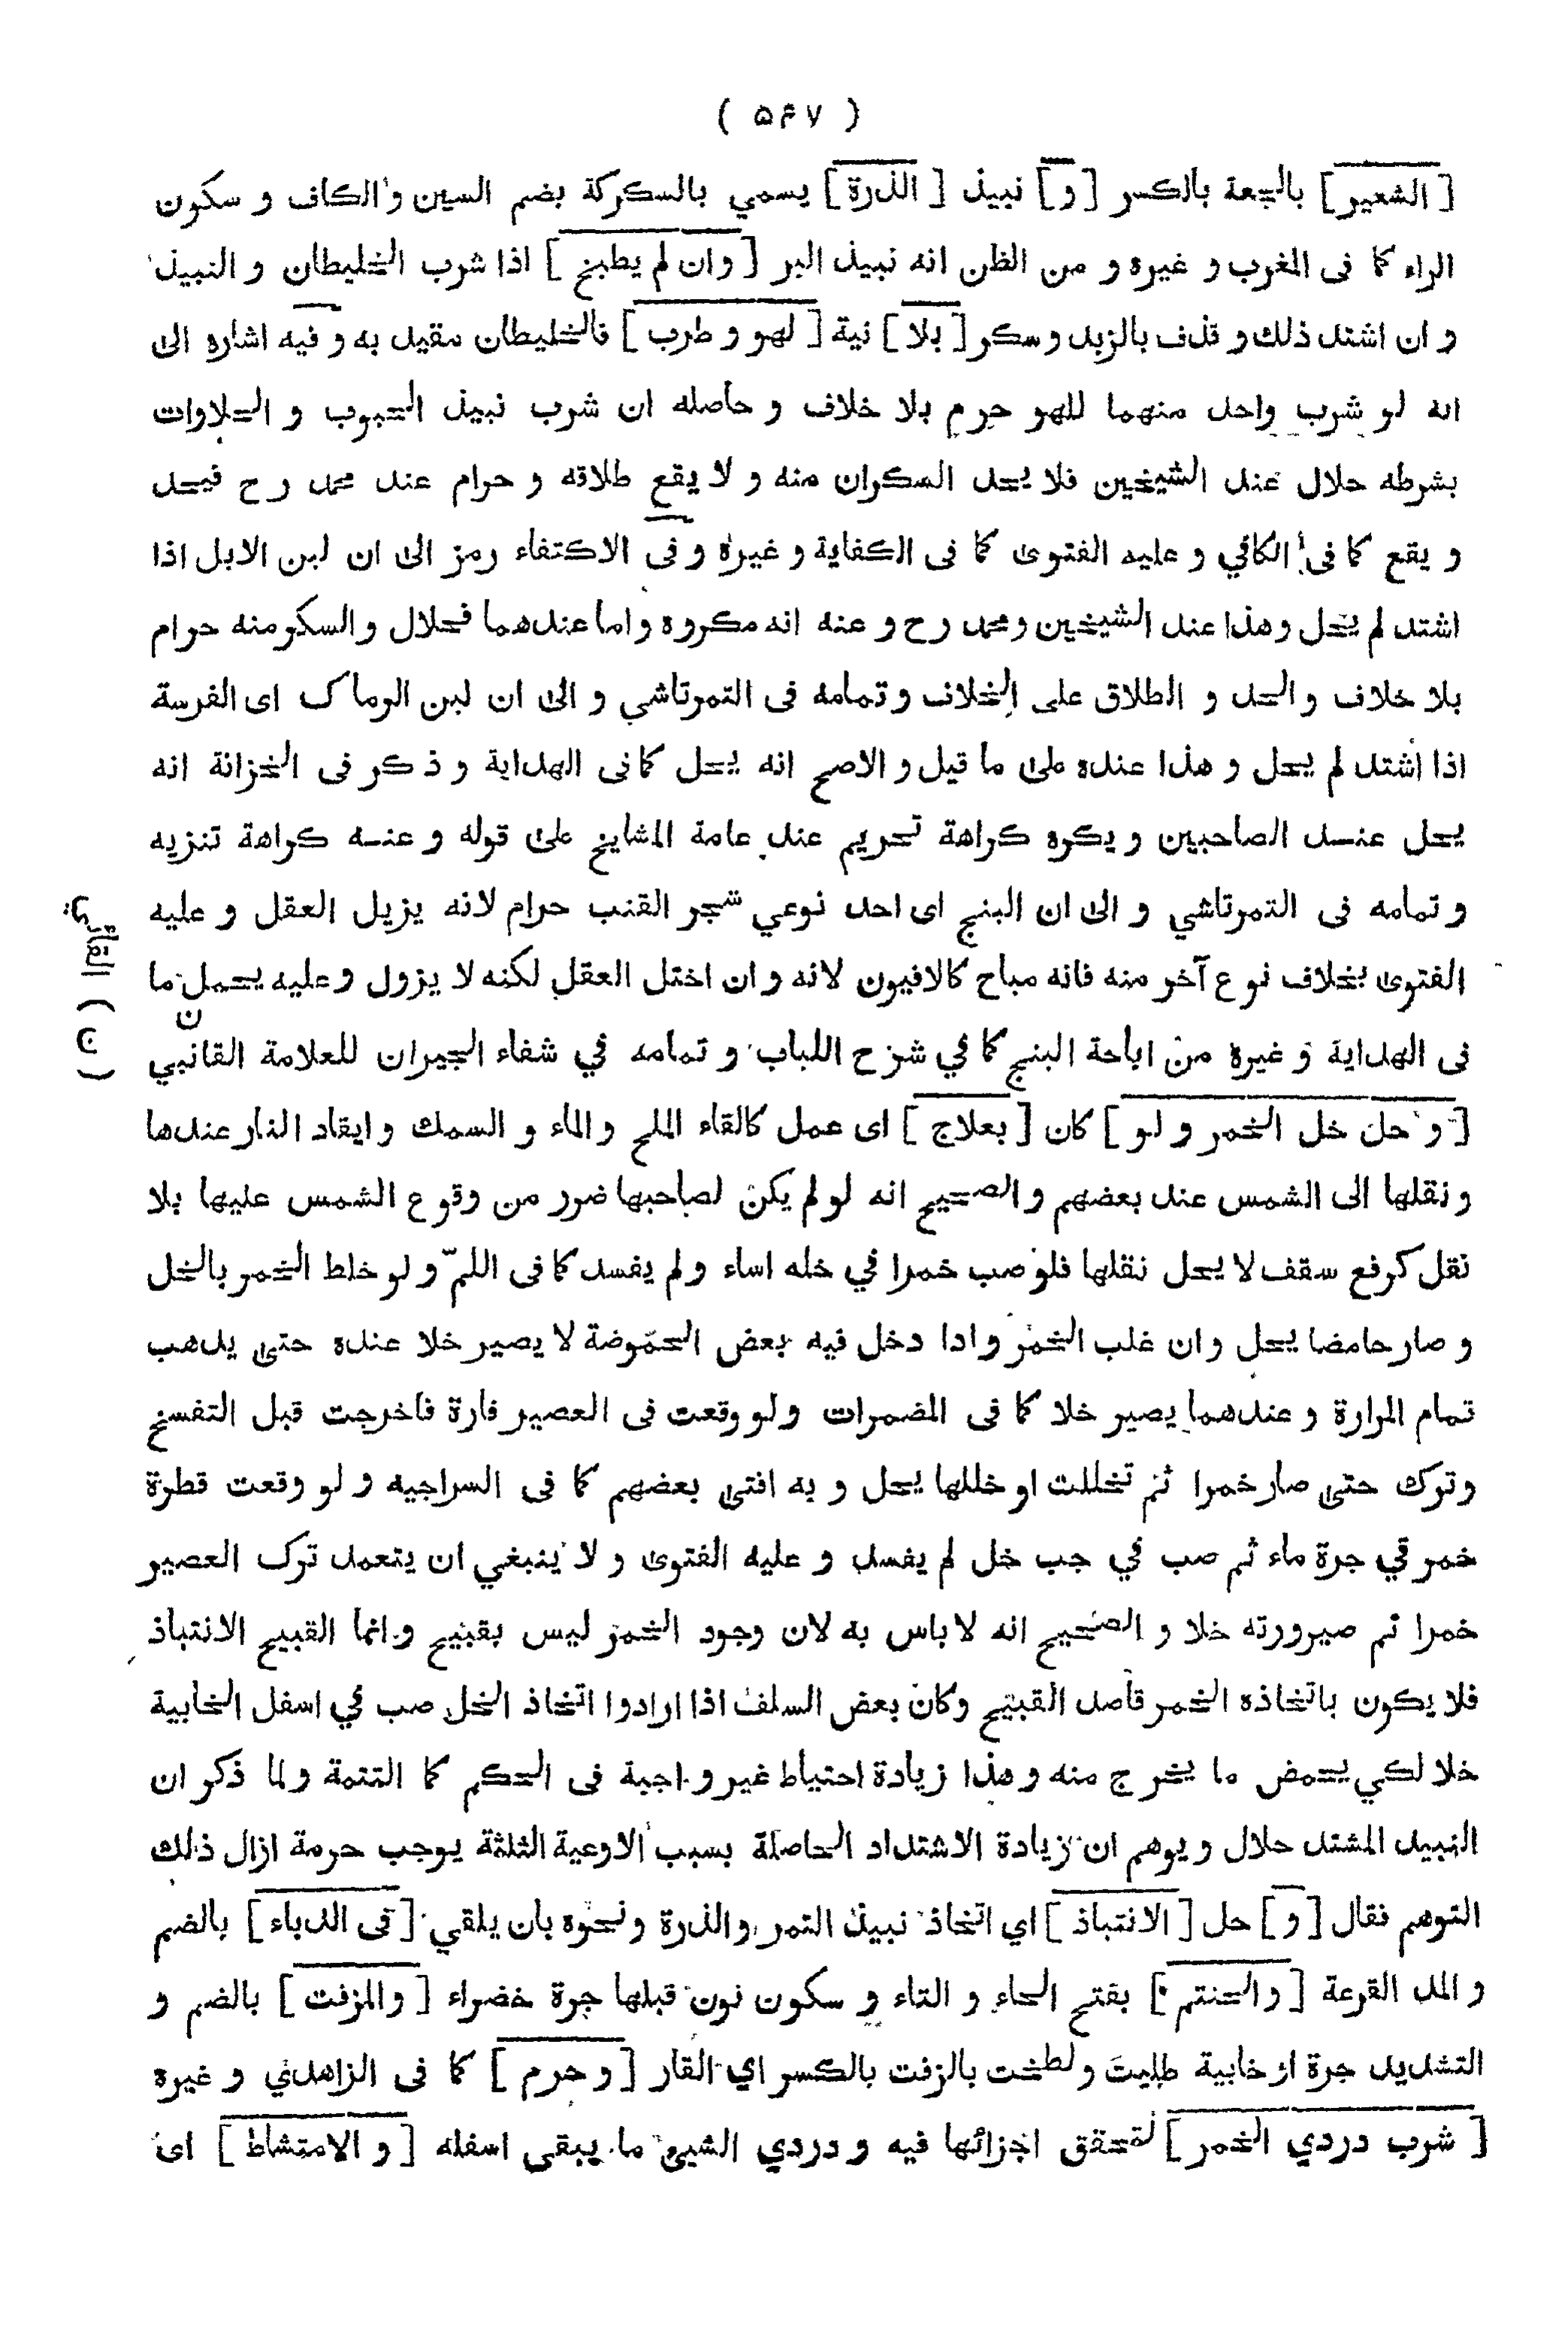 ( ۵۴۷ )
[ الشعير ] بالجعة بالكسر [ و ] نبيذ [ الذرة ] يسمي بالسكركة بضم السين و الكاف و سكون
الراء كما فى المغرب و غيره و من الظن انه نبيذ البر [ و ان لم يطبخ ] اذا شرب الخليطان و النبيذ
و ان اشتد ذلك و قذف بالزبد و سكر [ بلا ] نية [ لهو و طرب ] فالخليطان مقيد به و فيه اشارة الى
انه لو شرب واحد منهما للهو حرم بلا خلاف و حاصله ان شرب نبيذ الحبوب و الحلاوات
بشرطه حلال عند الشيخين فلا يحد السكران منه و لا يقع طلاقه و حرام عند محمد رح فيحد
و يقع كما فى الكافي و عليه الفتوى كما فى الكفاية و غيرة و فى الاكتفاء رمز الى ان لبن الابل اذا
اشتد لم يحل و هذا عند الشيخين و محمد رح و عنه انه مكروه و اما عندهما فحلال و السكر منه حرام
بلا خلاف و الحد و الطلاق على الخلاف و تمامه فى التمرتاشي و الى ان لبن الرماك اى الفرسة
اذا اشتد لم يحل و هذا عنده على ما قيل و الاصح انه يحل كما فى الهداية و ذكر فى الخزانة انه
يحل عند الصاحبين و يكره كراهة تحريم عند عامة المشايخ على قوله و عنه كراهة تنزيه
و تمامه فى التمرتاشي و الى ان البنج اى احد نوعي شجر القنب حرام لانه يزيل العقل و عليه
الفتوى بخلاف نوع آخر منه فانه مباح كالافيون لانه و ان اختل العقل لكنه لا يزول و عليه يحمل ما
فى الهداية و غيرة من اباحة البنج كما في شرح اللباب و تمامه في شفاء الجيران للعلامة القانبي
[ و حل خل الخمر و لو ] كان [ بعلاج ] اى عمل كالقاء الملح و الماء و السمك و ايقاد النار عندها
و نقلها الى الشمس عند بعضهم و الصحيح انه لو لم يكن لصاحبها ضرر من وقوع الشمس عليها بلا
نقل كرفع سقف لا يحل نقلها فلو صب خمرا في خله اساء و لم يفسد كما فى اللمّ و لو خلط الخمر بالخل
و صار حامضا يحل و ان غلب الخمر و اذا دخل فيه بعض الحموضة لا يصير خلا عنده حتى يذهب
تمام المرارة و عندهما يصير خلا كما فى المضمرات و لو وقعت فى العصير فارة فاخرجت قبل التفسخ
و ترك حتى صار خمرا ثم تخللت او خللها يحل و به افتى بعضهم كما فى السراجيه و لو وقعت قطرة
خمر في جرة ماء ثم صب في جب خل لم يفسد و عليه الفتوى و لا ينبغي ان يتعمد ترك العصير
خمرا ثم صيرورته خلا و الصحيح انه لا باس به لان وجود الخمر ليس بقبيح و انما القبيح الانتباذ
فلا يكون باتخاذه الخمر قاصد القبيح و كان بعض السلف اذا ارادوا اتخاذ الخل صب في اسفل الخابية
خلا لكي يحمض ما يخرج منه و هذا زيادة احتياط غير واجبة فى الحكم كما التتمة و لما ذكر ان
النبيذ المشتد حلال و يوهم ان زيادة الاشتداد الحاصلة بسبب الاوعية الثلثة يوجب حرمة ازال ذلك
التوهم فقال [ و ] حل [ الانتباذ ] اي اتخاذ نبيذ التمر و الذرة و نحوه بان يلقي [ فى الدباء ] بالضم
و المد القرعة [ و الحنتم ] بفتح الحاء و التاء و سكون نون قبلها جرة خضراء [ و المزفت ] بالضم و
التشديد جرة او خابية طليت و لطخت بالزفت بالكسر اي القار [ و حرم ] كما فى الزاهدي و غيره
[ شرب دردي الخمر ] لتحقق اجزائها فيه و دردي الشيئ ما يبقى اسفله [ و الامتشاط ] اى